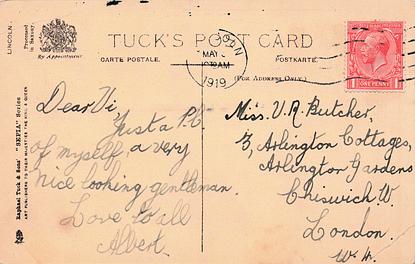 TUCK'S POST CARD
CARTE POSTALE.
POSTKARTE.
By Appointment
(FOR ADDRESS ONLY.)
LINCOLN.
Processed in Saxony.
Raphael Tuck & Sons' "SEPIA" Series
ART PUBLISHERS TO THEIR MAJESTIES THE KING & QUEEN
MAY
1919
ONE PENNY
Dear Vi
Just a P.C
of myself, a very
nice looking gentleman.
Love to all
Albert.
Miss. V. R. Butcher,
3, Arlington Cottages,
Arlington Gardens
Chiswick W.
London.
W. 4.